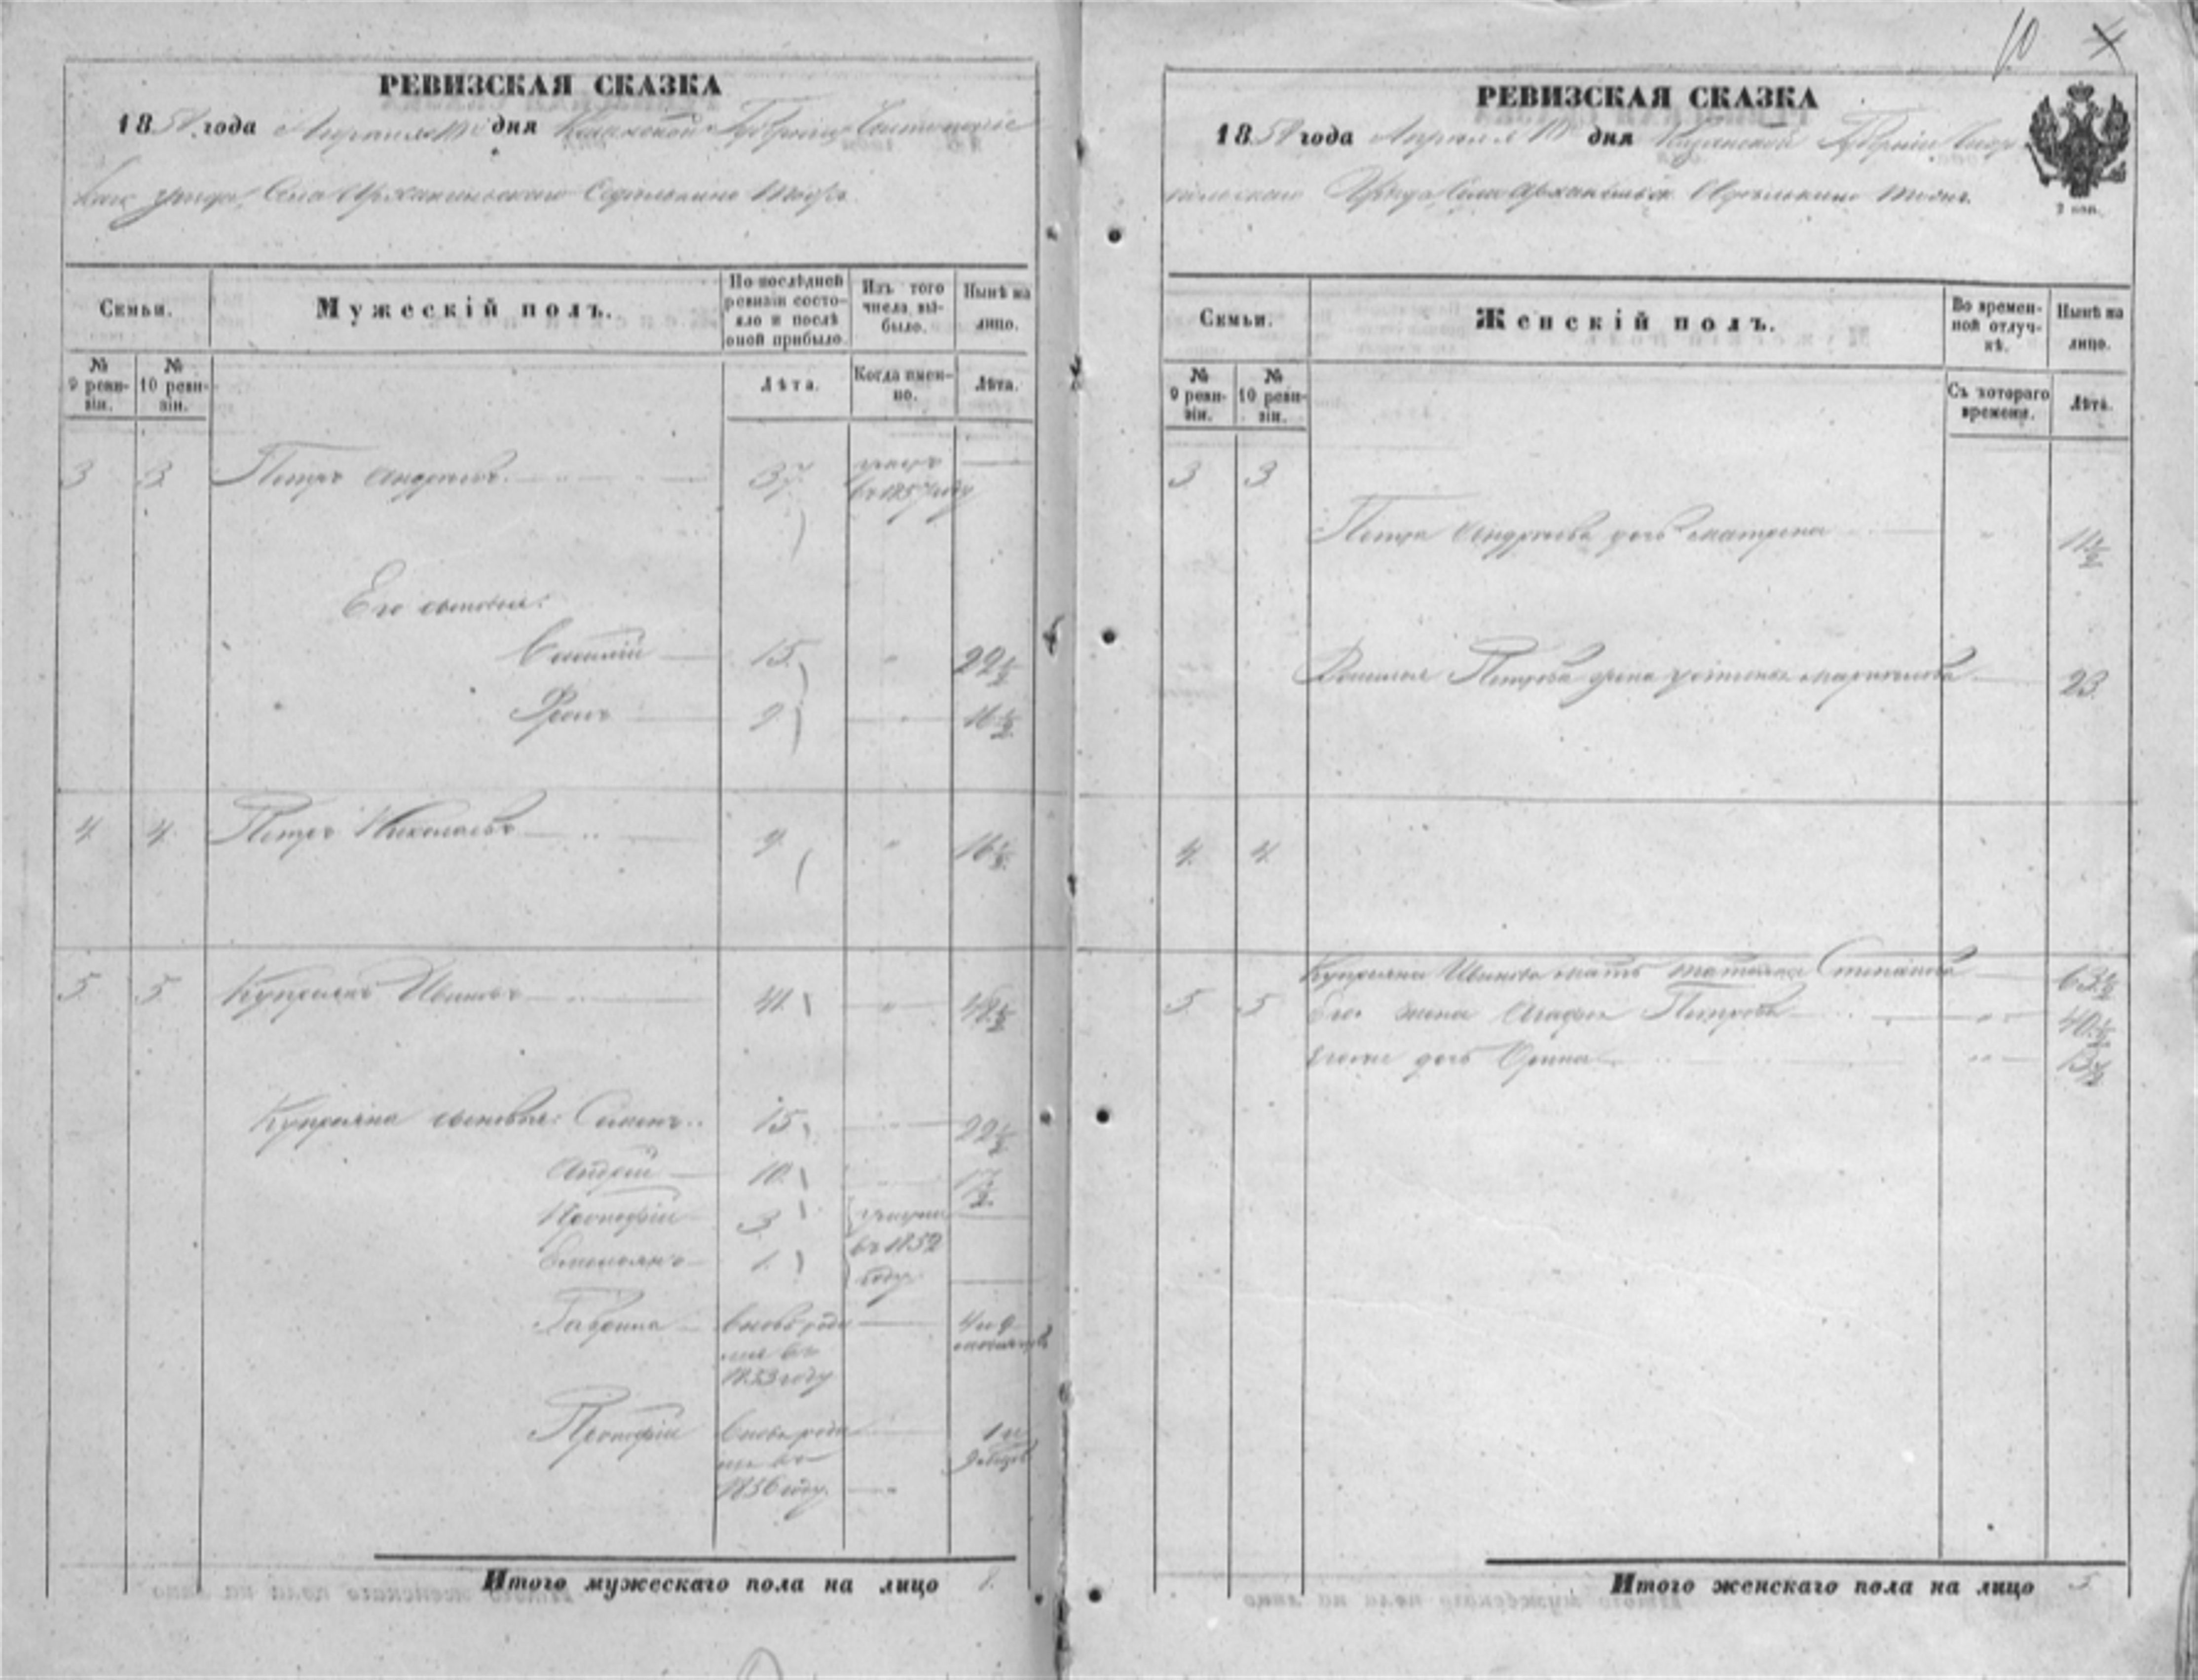 РЕВИЗСКАЯ СКАЗКА
1858 года Апреля дня Казанской Губернии
уезда, Села Архангельскаго
Семьи.
Мужескій полъ.
По послѣдней ревизіи состояло и послѣ оной прибыло.
Изъ того числа выбыло.
Нынѣ на лицо.
№ 9 ревизіи.
№ 10 ревизіи.
Лѣта.
Когда именно.
Лѣта.
3 3 Петръ Андреевъ 37 умеръ въ 1857 году
Его сыновья:
15 22 1/2
Фролъ 9 16 1/2
4 4 Петръ Николаевъ 9 16 1/2
5 5 Купреянъ Ивановъ 41 48 1/2
Купреяна сыновья: Семенъ 15 22 1/2
Андрей 10 17 1/2
Прокофій 3 въ 1852 году
1
Гаврила вновь роди
лся въ
1853 году
4 и 9 месяцовъ
Прокофій вновь роди
лся въ
1856 году
1 и 9 месяцов
Итого мужескаго пола на лицо 8
10
РЕВИЗСКАЯ СКАЗКА
1858 года Апреля дня Казанской Губерніи
Уезда, Села Архангельск
2 коп.
Семьи.
Женскій полъ.
Во временной отлучкѣ.
Нынѣ на лицо.
№ 9 ревизіи.
№ 10 ревизіи.
Съ котораго времени.
Лѣта.
3 3
Петра Андреева дочь Матрена 11 1/2
Петрова жена 23
4 4
Купреяна Иванова мать Татьяна Степанова 63 1/2
5 5 Его жена Агафья Петрова 40 1/2
дочь Орина 13 1/2
Итого женскаго пола на лицо 5